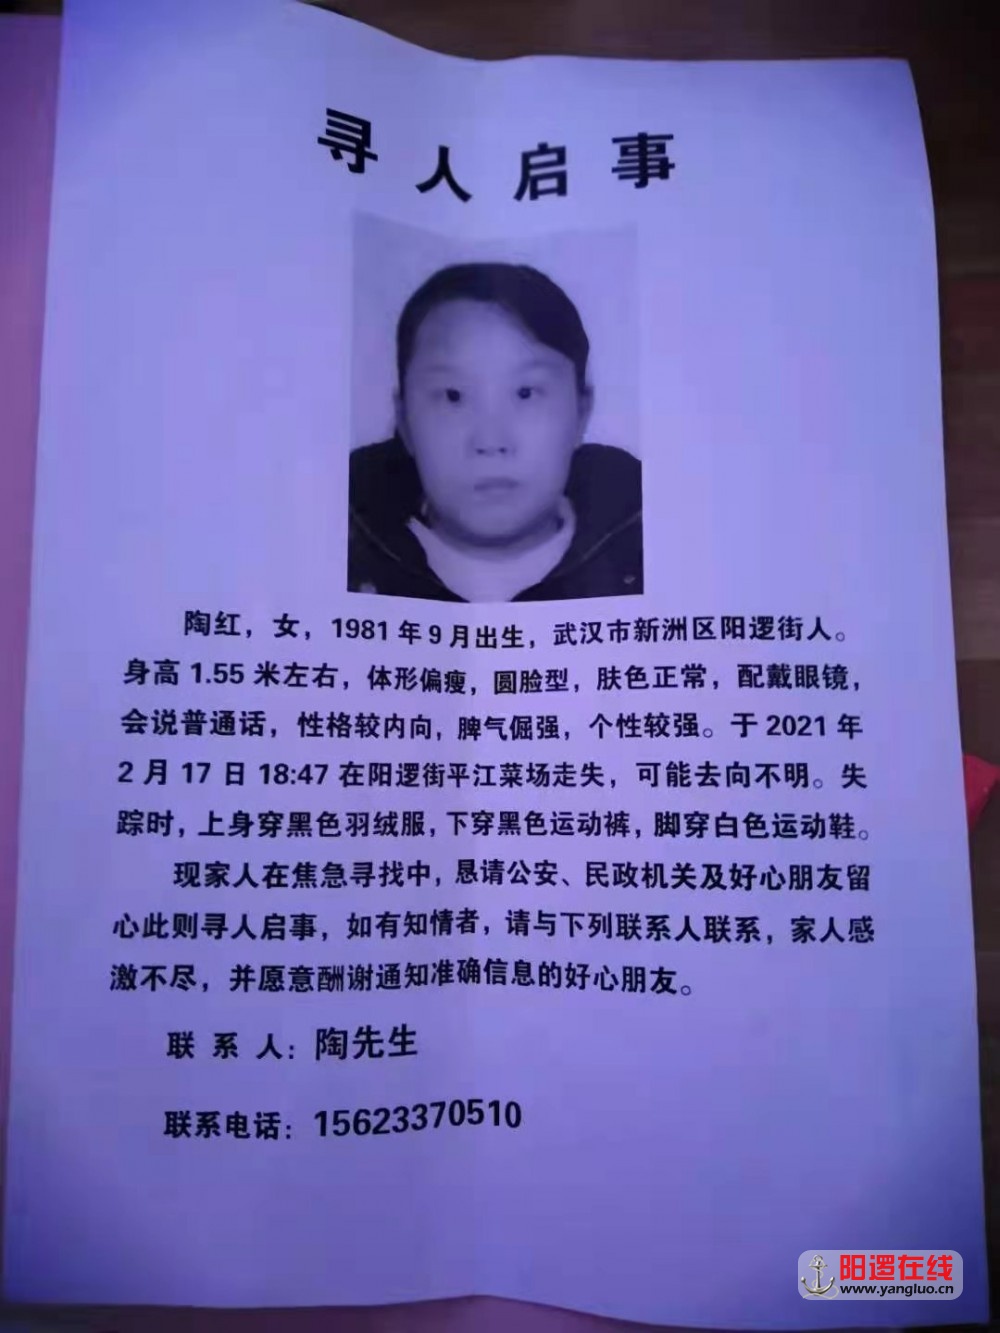 寻人启事
陶红，女，1981年9月出生，武汉市新洲区阳逻街人。
身高1.55米左右，体形偏瘦，圆脸型，肤色正常，配戴眼镜，
会说普通话，性格较内向，脾气倔强，个性较强。于2021年
2月17日18:47在阳逻街平江菜场走失，可能去向不明。失
踪时，上身穿黑色羽绒服，下穿黑色运动裤，脚穿白色运动鞋。
现家人在焦急寻找中，恳请公安、民政机关及好心朋友留
心此则寻人启事，如有知情者，请与下列联系人联系，家人感
激不尽，并愿意酬谢通知准确信息的好心朋友。
联系人：陶先生
联系电话：15623370510
阳逻在线
www.yangluo.cn